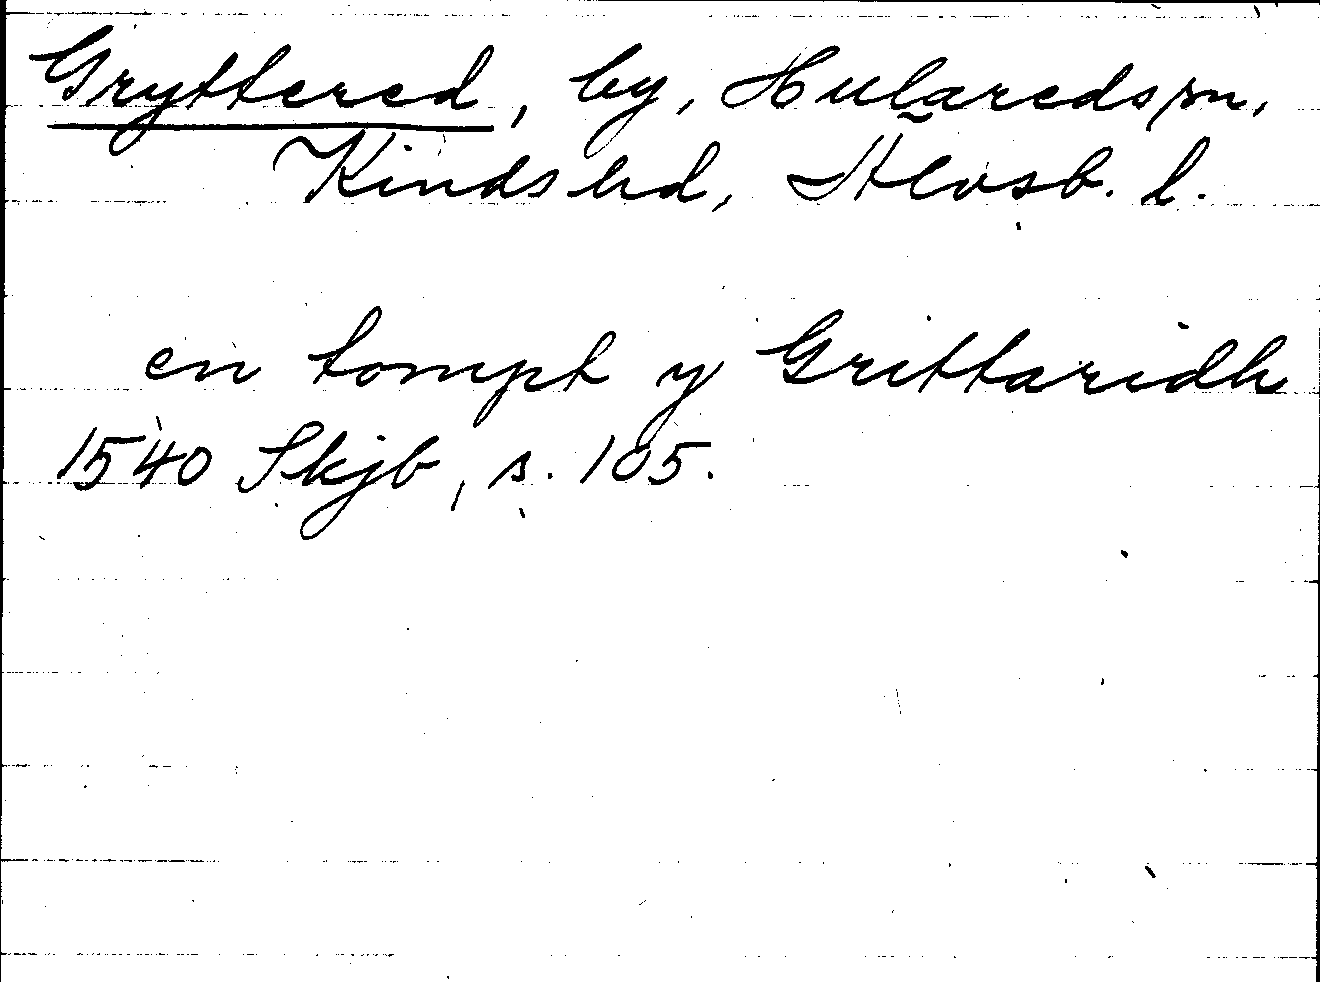 Gryttered, by, Hularedssn,
Kinds hd, Älvsb. l.
en tompt y Grittaridh
1540 Skjb, s. 105.